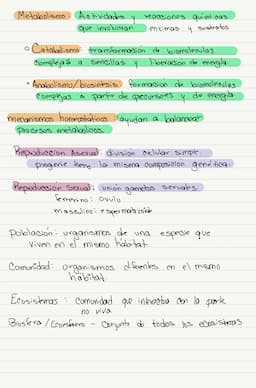 Metabolismo: Actividades y reacciones químicas
que involucran enzimas y sustratos
Catabolismo: transformación de biomoléculas
complejas a sencillas y liberación de energía
Anabolismo/biosíntesis: formación de biomoléculas
complejas a partir de precursores y de energía
mecanismos homeostáticos ayudan a balancear
procesos metabólicos.
Reproducción Asexual: división celular simple
progenie tiene la misma composición genética.
Reproducción Sexual: unión gametos sexuales.
femenino: óvulo
masculino: espermatozoide
Población: organismos de una especie que
viven en el mismo hábitat
Comunidad: organismos diferentes en el mismo
hábitat.
Ecosistemas: comunidad que interactúa con la parte
no viva
Biosfera / Ecosfera - Conjunto de todos los ecosistemas